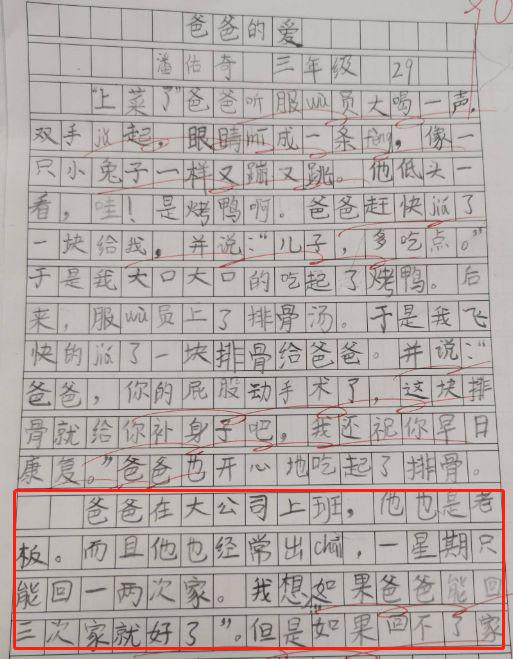 爸爸的爱
潘佑奇 三年级 29
“上菜了”爸爸听服wù员大喝一声，
双手jǔ起，眼睛mī成一条fèng，像一
只小兔子一样又蹦又跳。他低头一
看，哇！是烤鸭啊。爸爸赶快jiā了
一块给我，并说：“儿子，多吃点。”
于是我大口大口的吃起了烤鸭。后
来，服wù员上了排骨汤。于是我飞
快的jiā了一块排骨给爸爸。并说：“
爸爸，你的屁股动手术了，这块排
骨就给你补身子吧，我还祝你早日
康复。”爸爸也开心地吃起了排骨。
爸爸在大公司上班，他也是老
板。而且他也经常出chāi，一星期只
能回一两次家。我想“如果爸爸能回
三次家就好了”。但是如果回不了家